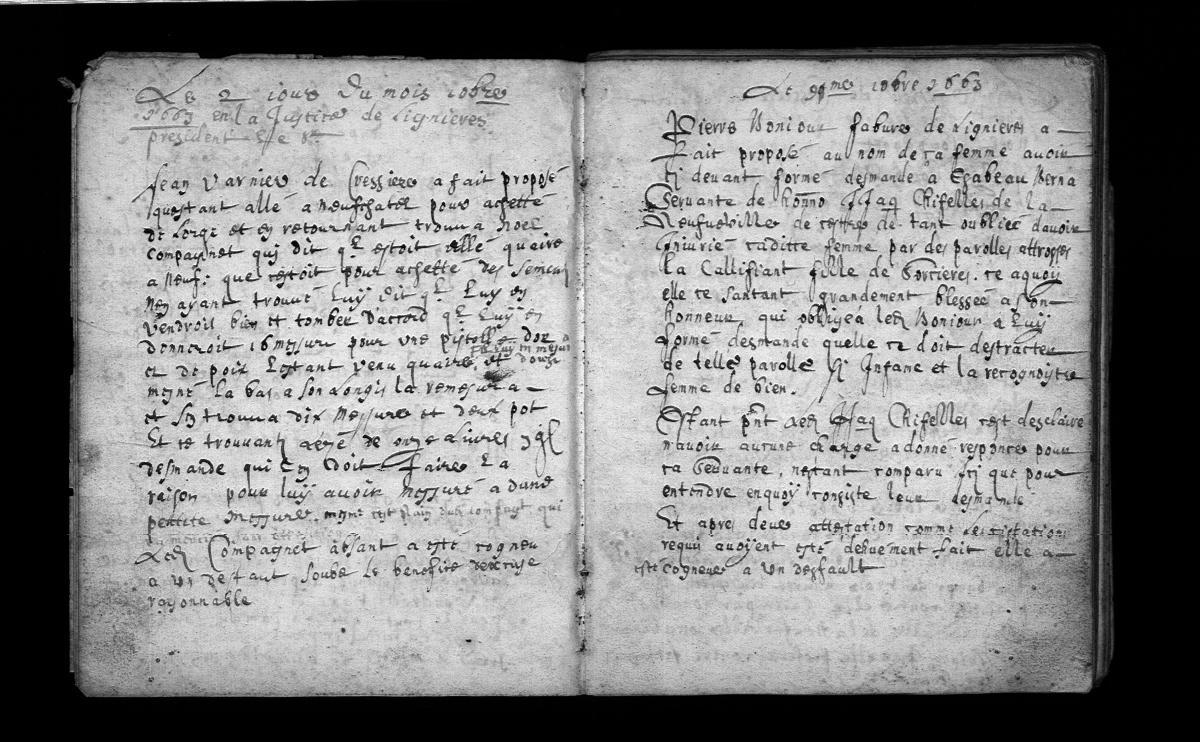 Le 2 iour Du mois 10bre
1663 en la Justice de Lignieres
president le Sr
Jean Varnier de Cressiere a fait proposé
questant allé a Neufchatel pour achetté
de lorge et en retournant trouva Noel
Compagnet quj dit ql estoit allé quaire
a Neuf: que cestoit pour achetté des semens
Nen ayant trouvé Luÿ dit ql Luy en
vendroit bien et tomber Daccord ql Luÿ en
donneroit 16 messure pour une pistolle dor
et de poix Lestant venu quaire et
mené La bas a son Longis la remesura
et sen trouva dix Messure et deux pot
Et ce trouvant lezé de onze Livres
desmande qui len doit faire La
raison pour luÿ avoir messuré a dune
pettite Messure. mesme cest plain du compagt qui
Led. Compagnet absant a esté cogneu
a un desfaut soube le benefite dexcuse
raysonnable
Le 9me 10bre 1663
Pierre Bonjour fabure de Lignieres a
fait proposé au nom de ça femme avoir
cj devant formé desmande a Esabeau Berna
Servante de honno Isaq Chifelles de la
Neufveville de cettre de tant oubliee davoir
injurié caditte femme par des parolles attrosses
La Callifiant fille de Sorcieres. ce aquoÿ
elle ce santant grandement blesseé a son
honneur, qui obligea led Bonjour a Luÿ
formé desmande quelle ce doit destracter
de telle parolle sj Infame et la recognoitre
femme de bien.
Estant pnt led Isaq Chifelles cest desclaire
navoir aucune charge a donné responce pour
ca Servante, nestant comparu icj que pour
entendre enquoÿ consiste leur desmande
Et apres deue attestation comme les citations
requis avoyent esté dehuement fait elle a
esté Cogneue a un desfault